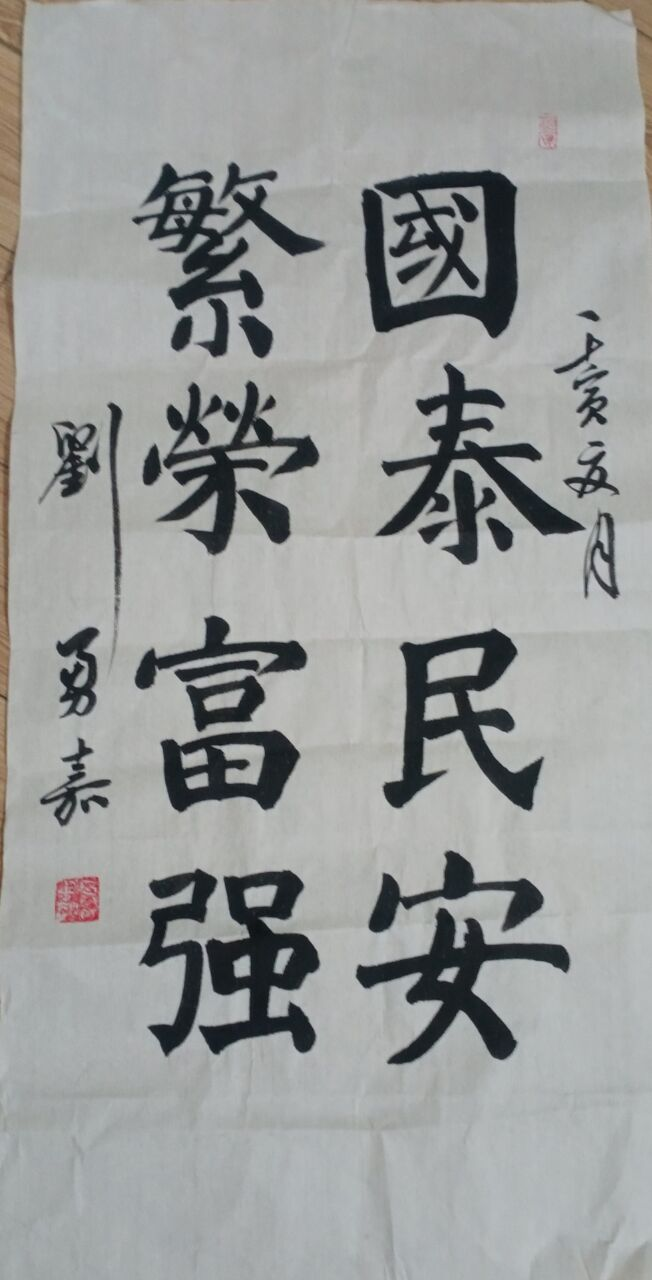 壬寅夏月
國泰民安
繁榮富强
劉勇嘉